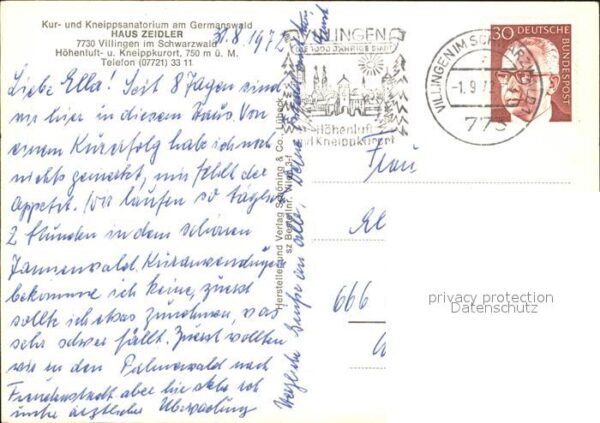 Kur- und Kneippsanatorium am Germanswald
HAUS ZEIDLER
7730 Villingen im Schwarzwald
Höhenluft- u. Kneippkurort, 750 m ü. M.
Telefon (07721) 33 11
31.8.1972
Liebe Ella! Seit 8 Tagen sind
wir hier in diesem Haus. Von
einem Kurerfolg habe ich noch
nichts gemerkt, mir fehlt der
Appetit. Wir laufen so täglich
2 Stunden in dem schönen
Tannenwald. Kuranwendungen
bekomme ich keine, zuerst
sollte ich etwas zunehmen, was
sehr schwer fällt. Zuerst wollten
wir in den Palmenwald nach
Freudenstadt aber hier stehe ich
unter ärztlicher Überwachung
Herzliche Grüße an alle, Deine
Hersteller und Verlag Schöning & Co., Lübeck
sz Bestellnr.
VILLINGEN
1000 JÄHRIGE STADT
Höhenluft
und Kneippkurort
VILLINGEN IM SCHWARZWALD 1
-1.9.72
773
30 DEUTSCHE
BUNDESPOST
Frau
666
privacy protection
Datenschutz